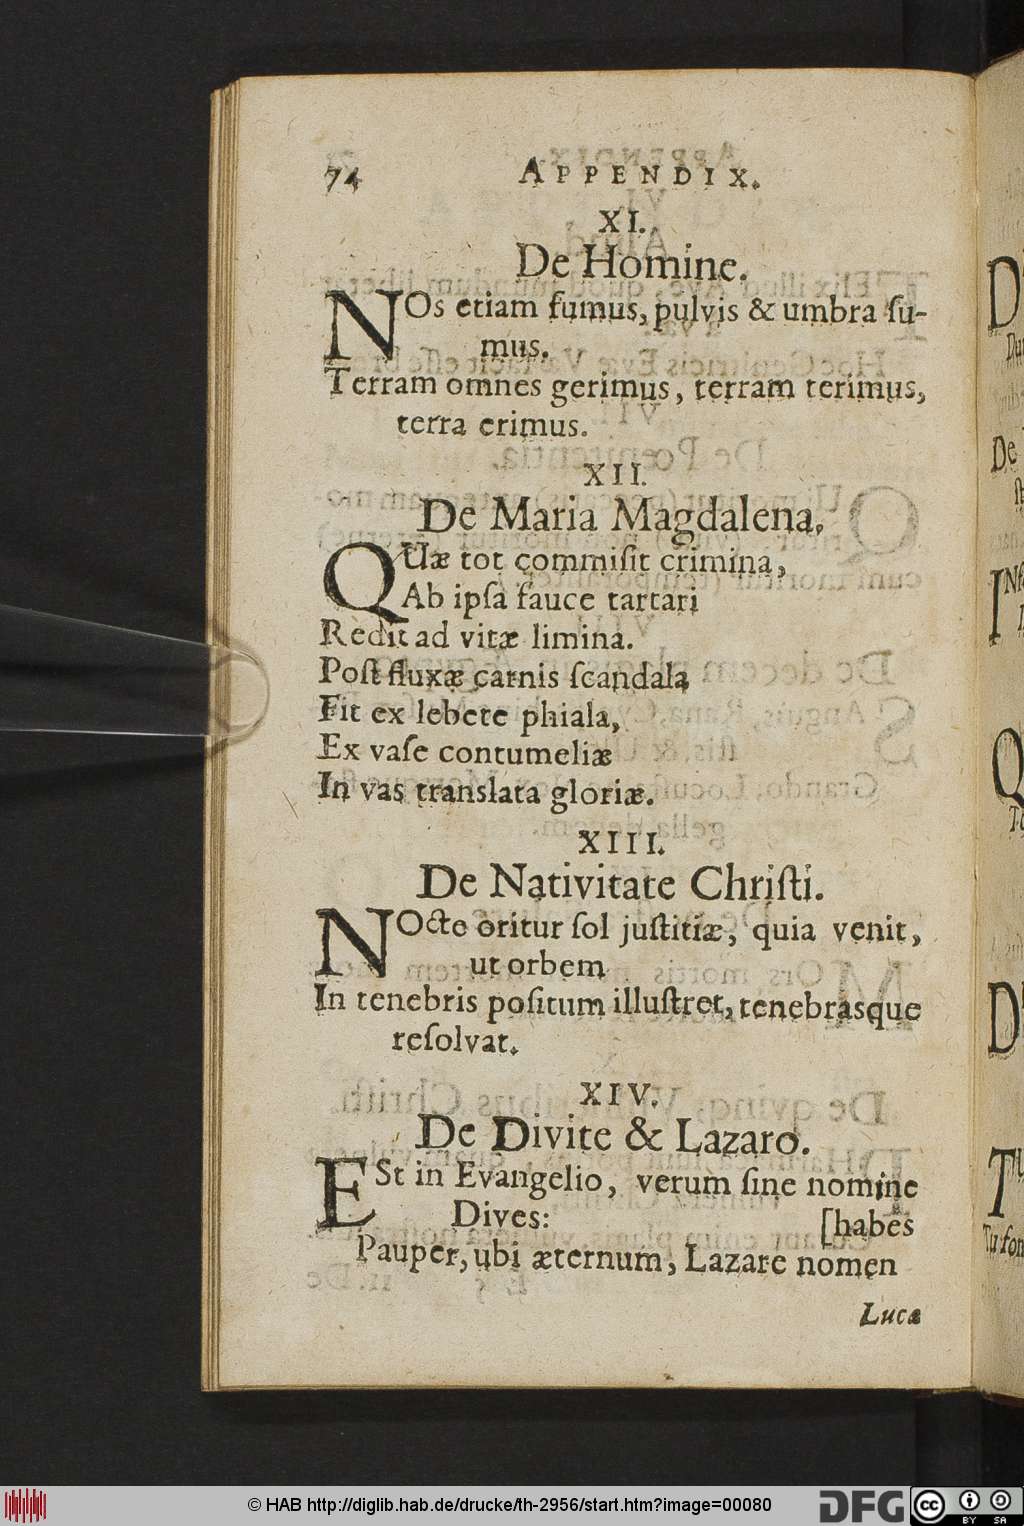 74 APPENDIX.
XI.
De Homine.
NOs etiam fumus, pulvis & umbra ſu-
mus.
Terram omnes gerimus, terram terimus,
terra erimus.
XII.
De Maria Magdalena.
QUæ tot commiſit crimina,
Ab ipſa fauce tartari
Redit ad vitæ limina.
Poſt fluxæ carnis ſcandala
Fit ex lebete phiala,
Ex vaſe contumeliæ
In vas translata gloriæ.
XIII.
De Nativitate Chriſti.
NOcte oritur ſol juſtitiæ, quia venit,
ut orbem
In tenebris poſitum illuſtret, tenebrasque
reſolvat.
XIV.
De Divite & Lazaro.
ESt in Evangelio, verum ſine nomine
Dives: [habes
Pauper, ubi æternum, Lazare nomen
Lucæ
© HAB http://diglib.hab.de/drucke/th-2956/start.htm?image=00080
DFG
cc BY SA